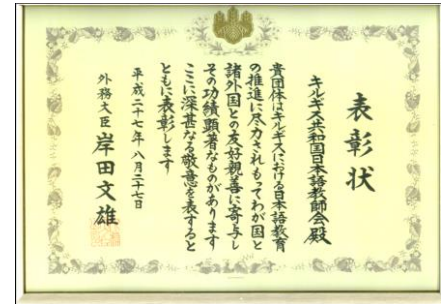 表彰状
キルギス共和国日本語教師会殿
貴団体はキルギスにおける日本語教育
の推進に尽力されもってわが国と
諸外国との友好親善に寄与し
その功績顕著なものがあります
ここに深甚なる敬意を表すると
ともに表彰します
平成二十七年八月二十七日
外務大臣 岸田文雄